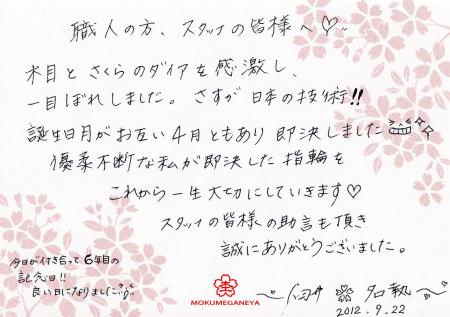 職人の方、スタッフの皆様へ♡
木目とさくらのダイアを感激し、
一目ぼれしました。さすが日本の技術!!
誕生日月がお互い4月ともあり即決しました
優柔不断な私が即決した指輪を
これから一生大切にしていきます♡
スタッフの皆様の助言も頂き
誠にありがとうございました。
今日が付き合って6年目の
記念日!!
良い日になりました
MOKUMEGANEYA
2012.9.22